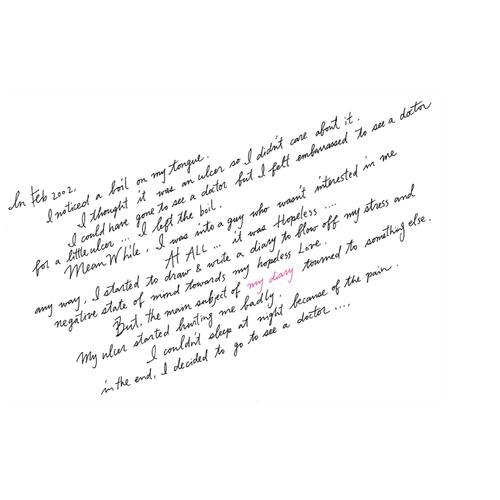 In Feb 2002,
I noticed a boil on my tongue.
I thought it was an ulcer so I didn't care about it.
I could have gone to see a doctor but I felt embarrassed to see a doctor
for a little ulcer ... I left the boil.
Mean While, I was into a guy who wasn't interested in me
At ALL ... it was Hopeless ....
any way, I started to draw & write a diary to blow off my stress and
negative state of mind towards my hopeless Love.
But, the main subject of my diary tourned to something else.
My ulcer started hurting me badly.
I couldn't sleep at night because of the pain.
in the end, I decided to go to see a doctor ....